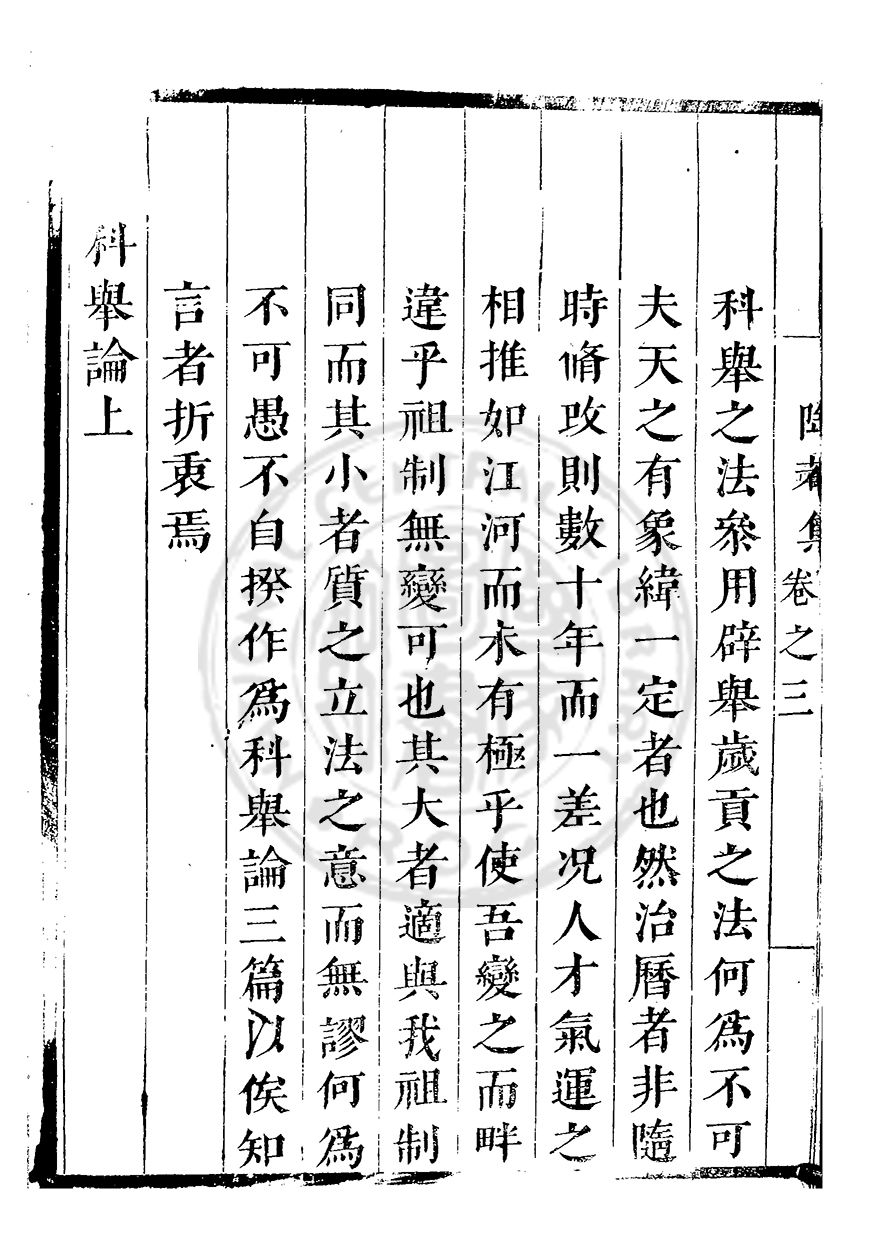 集卷之三
科舉之法叅用辟舉歲貢之法何爲不可
夫天之有象緯一定者也然治曆者非隨
時脩攺則數十年而一差况人才氣運之
相推如江河而未有極乎使吾變之而畔
違乎祖制無變可也其大者適與我祖制
同而其小者質之立法之意而無謬何爲
不可愚不自揆作爲科舉論三篇以俟知
言者折衷焉
科舉論上